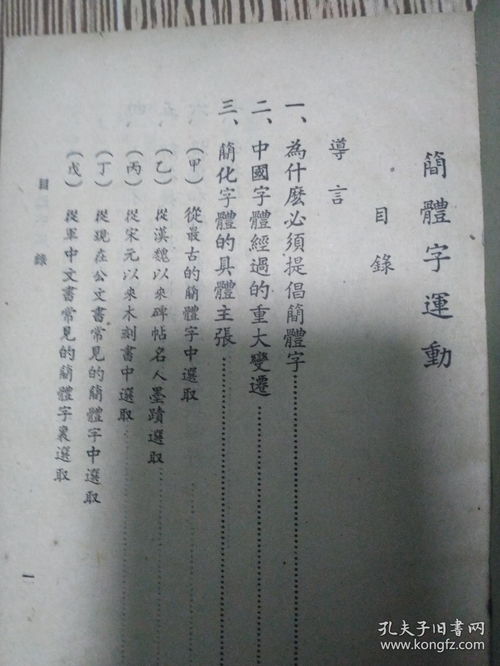 簡體字運動
目錄
導言
一、為什麼必須提倡簡體字
二、中國字體經過的重大變遷
三、簡化字體的具體主張
（甲）從最古的簡體字中選取
（乙）從漢魏以來碑帖名人墨蹟選取
（丙）從宋元以來木刻書中選取
（丁）從現在公文書常見的簡體字中選取
（戊）從軍中文書常見的簡體字裏選取
目錄
一
孔夫子旧书网
www.kongfz.com